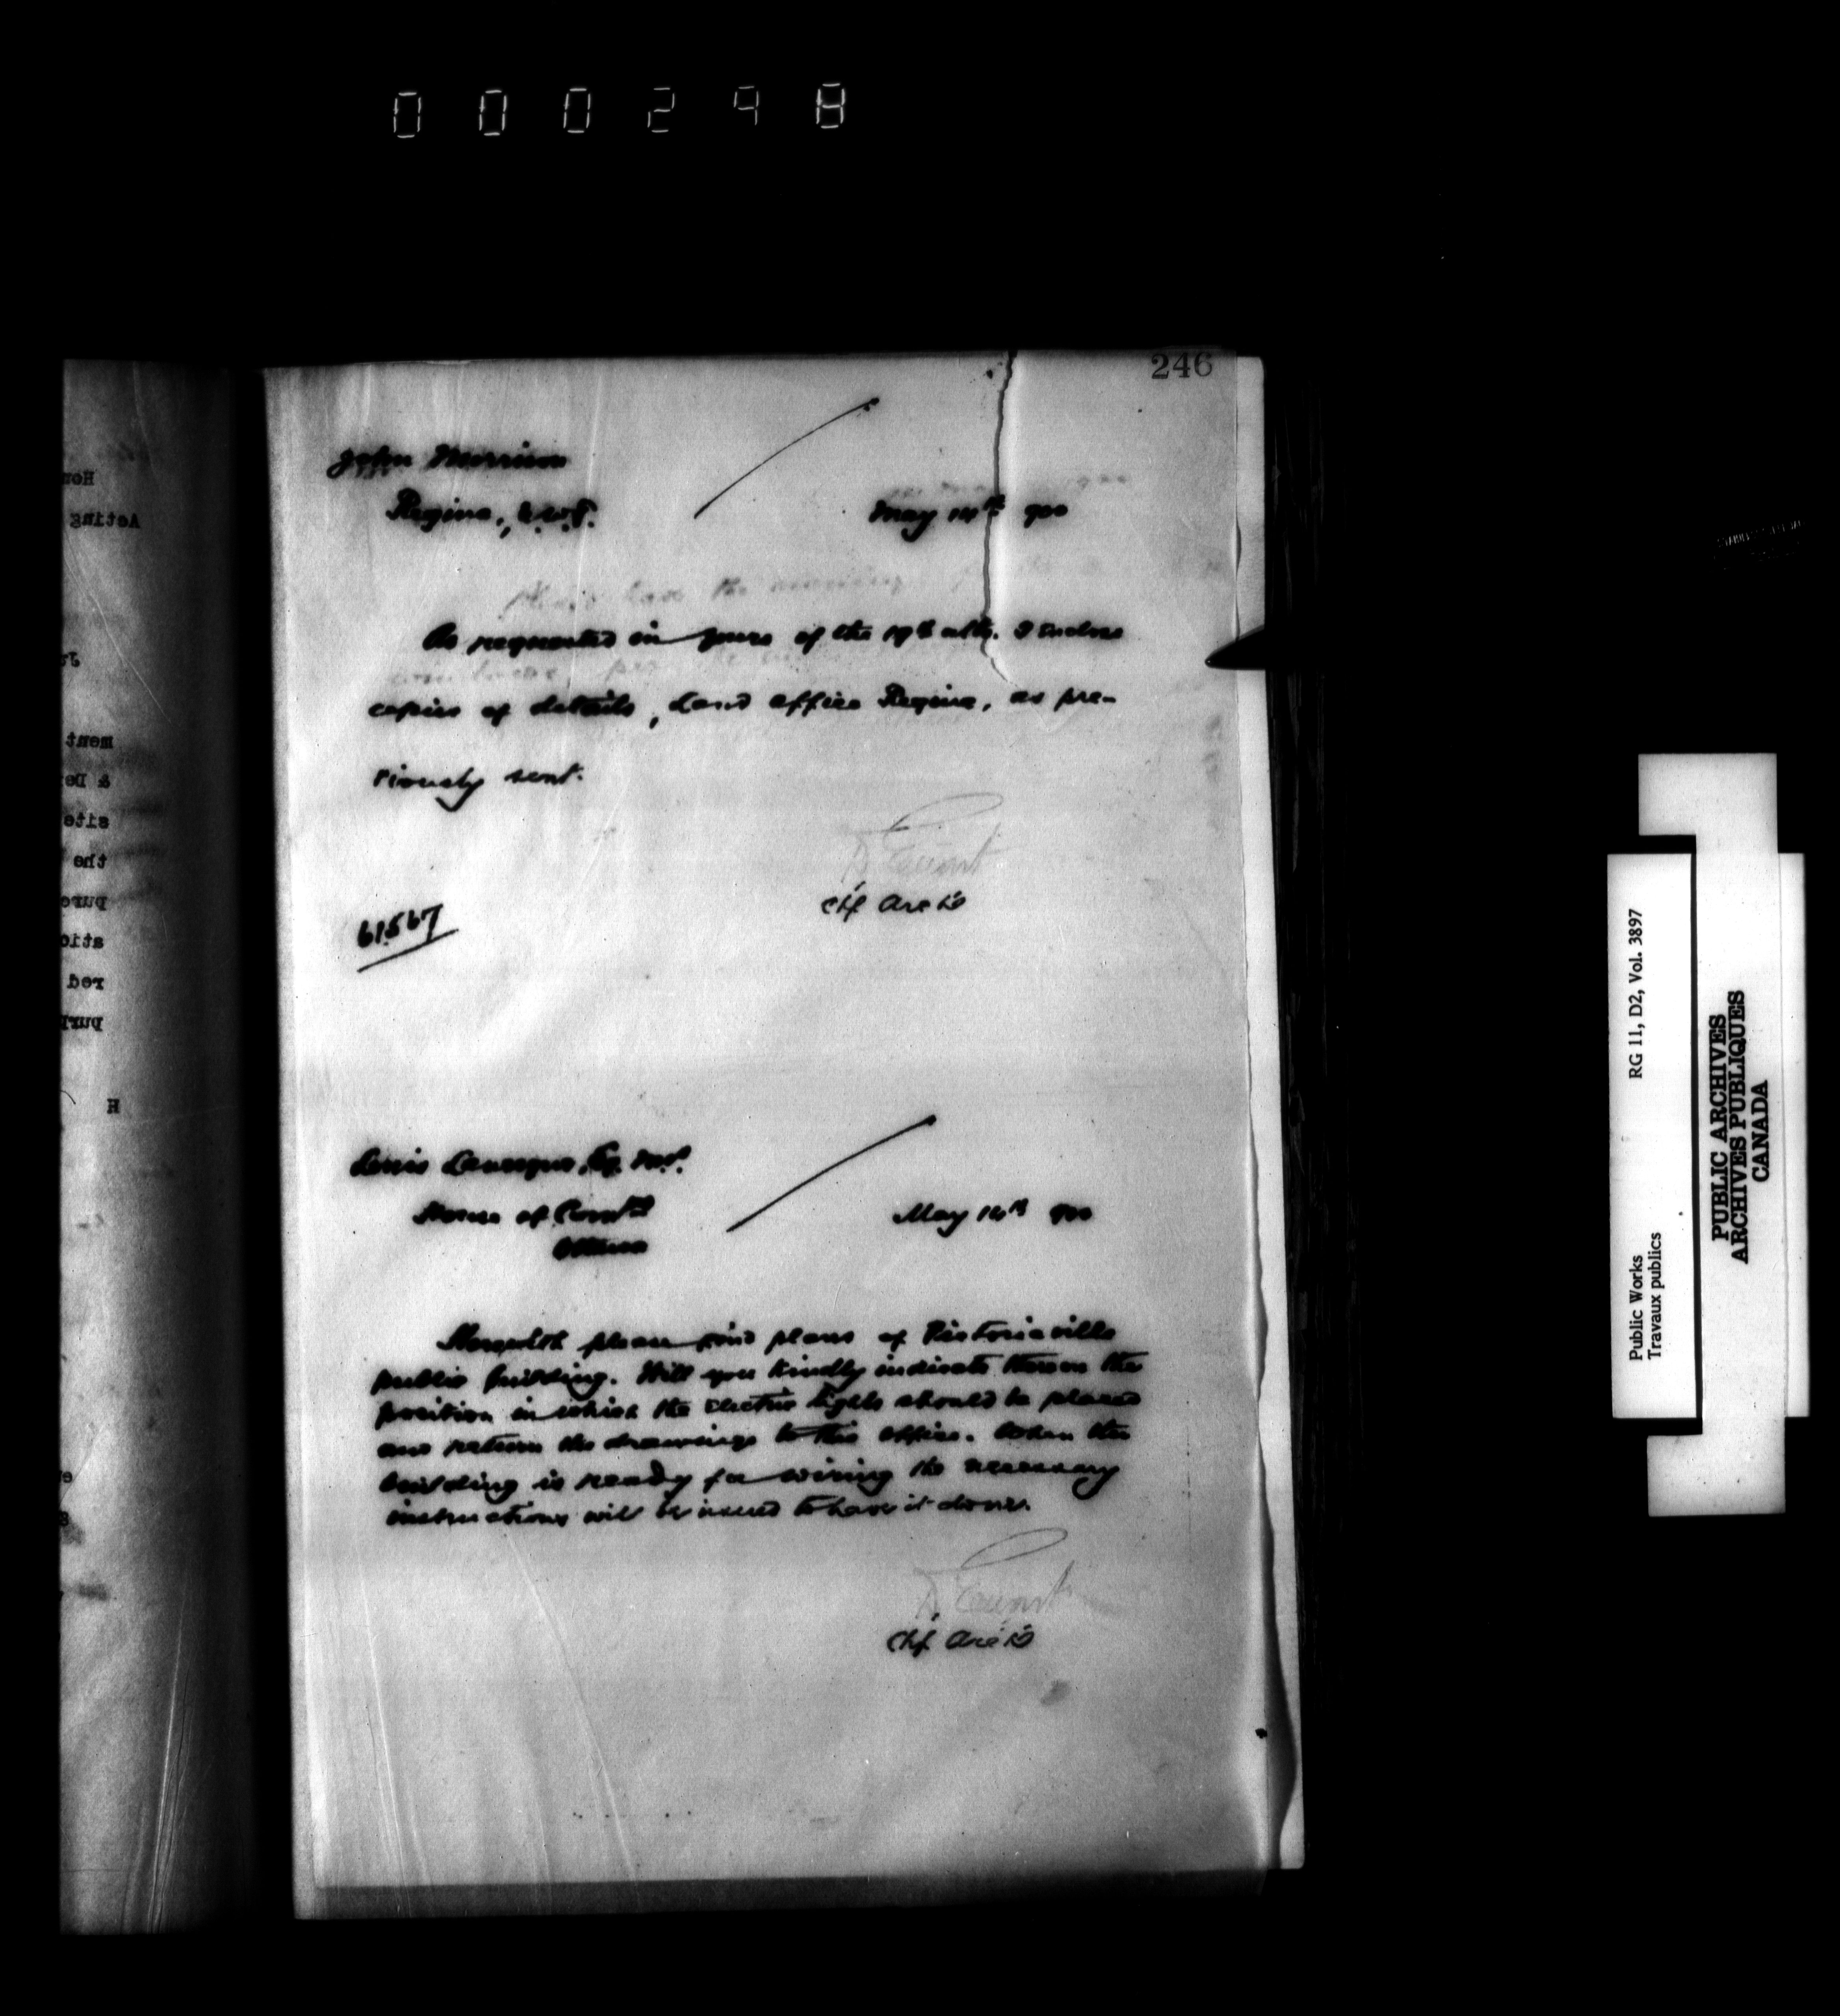 000298
246
John Morrison
Regina, N.W.T.
May 14th 900
As requested in yours of the 19th ulto. I enclose
copies of details, Land office Regina, as pre-
viously sent.
D Ewart
Chf Arct
61567
Louis Lavergne, Esq. M.P.
House of Com
Ottawa
May 14th 900
Herewith please find plans of Victoriaville
public building. Will you kindly indicate thereon the
position in which the Electric lights should be placed
and return the drawings to this office. When the
building is ready for wiring the necessary
instructions will be issued to have it done.
D Ewart
Chf Arct
Public Works
Travaux publics
RG 11, D2, Vol. 3897
PUBLIC ARCHIVES
ARCHIVES PUBLIQUES
CANADA